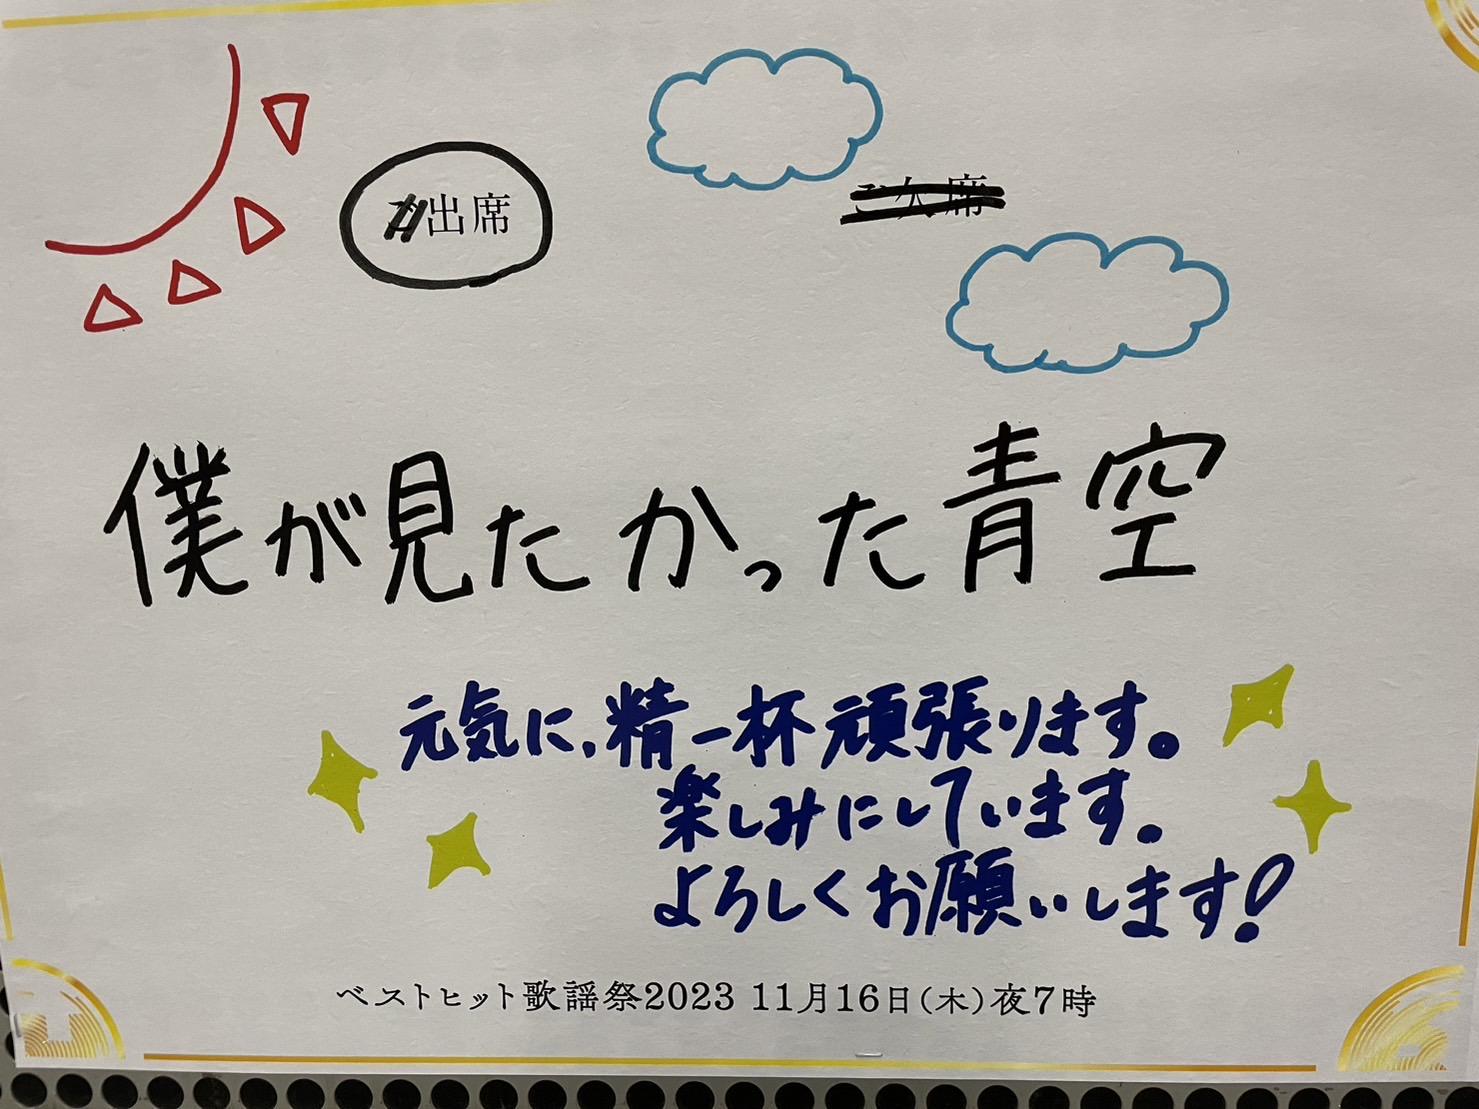 ご出席
ご欠席
僕が見たかった青空
元気に、精一杯頑張ります。
楽しみにしています。
よろしくお願いします!
ベストヒット歌謡祭2023 11月16日(木)夜7時